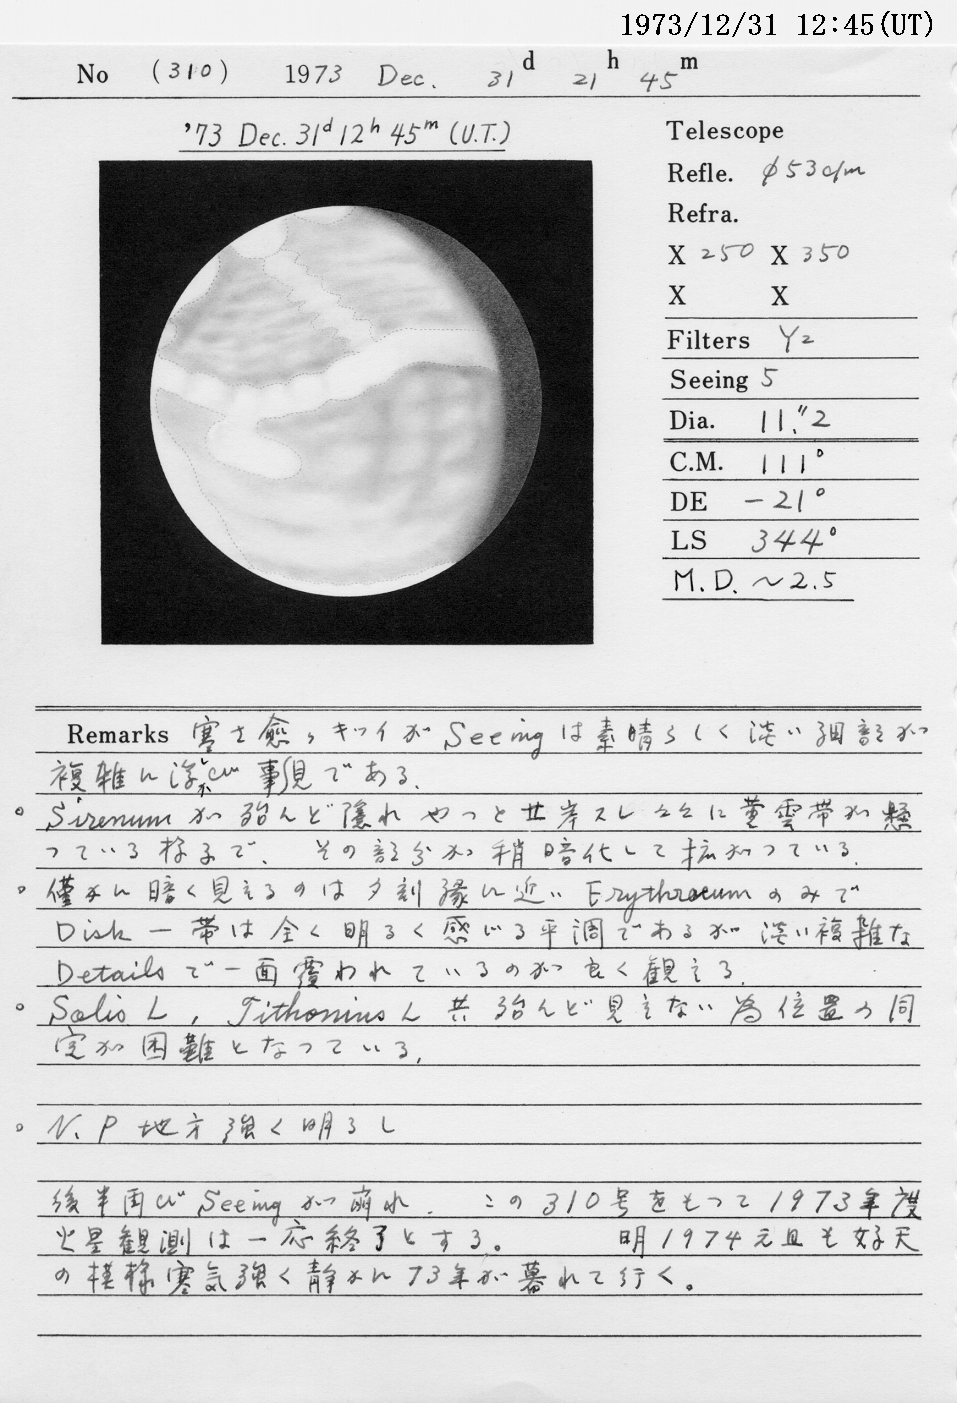 1973/12/31 12:45(UT)
No (310) 1973 Dec. 31d 21h 45m
'73 Dec. 31d 12h 45m (U.T.)
Telescope
Refle. φ53c/m
Refra.
X 250 X 350
X X
Filters Y2
Seeing 5
Dia. 11."2
C.M. 111°
DE -21°
LS 344°
M.D. ~2.5
Remarks 寒さ愈々キツイが Seeingは素晴らしく淡い細部が
複雑に浮び 事 見である.
。Sirenumが殆んど隠れやっと 岸スレスレに黄雲帯が懸
っている様子で、その部分が稍暗化して拡がっている.
。僅かに暗く見えるのは夕刻縁に近い Erythraeumのみで
Disk一帯は全く明るく感じる平調であるが淡い複雑な
Detailsで一面覆われているのが良く観える.
。Solis L, Tithonius L 共殆んど見えない為位置の同
定が困難となっている.
。N.P地方強く明るし
後半再び Seeingが崩れ. この310号をもって1973年度
火星観測は一応終了とする。 明1974元旦も好天
の模様寒気強く静かに73年が暮れて行く。